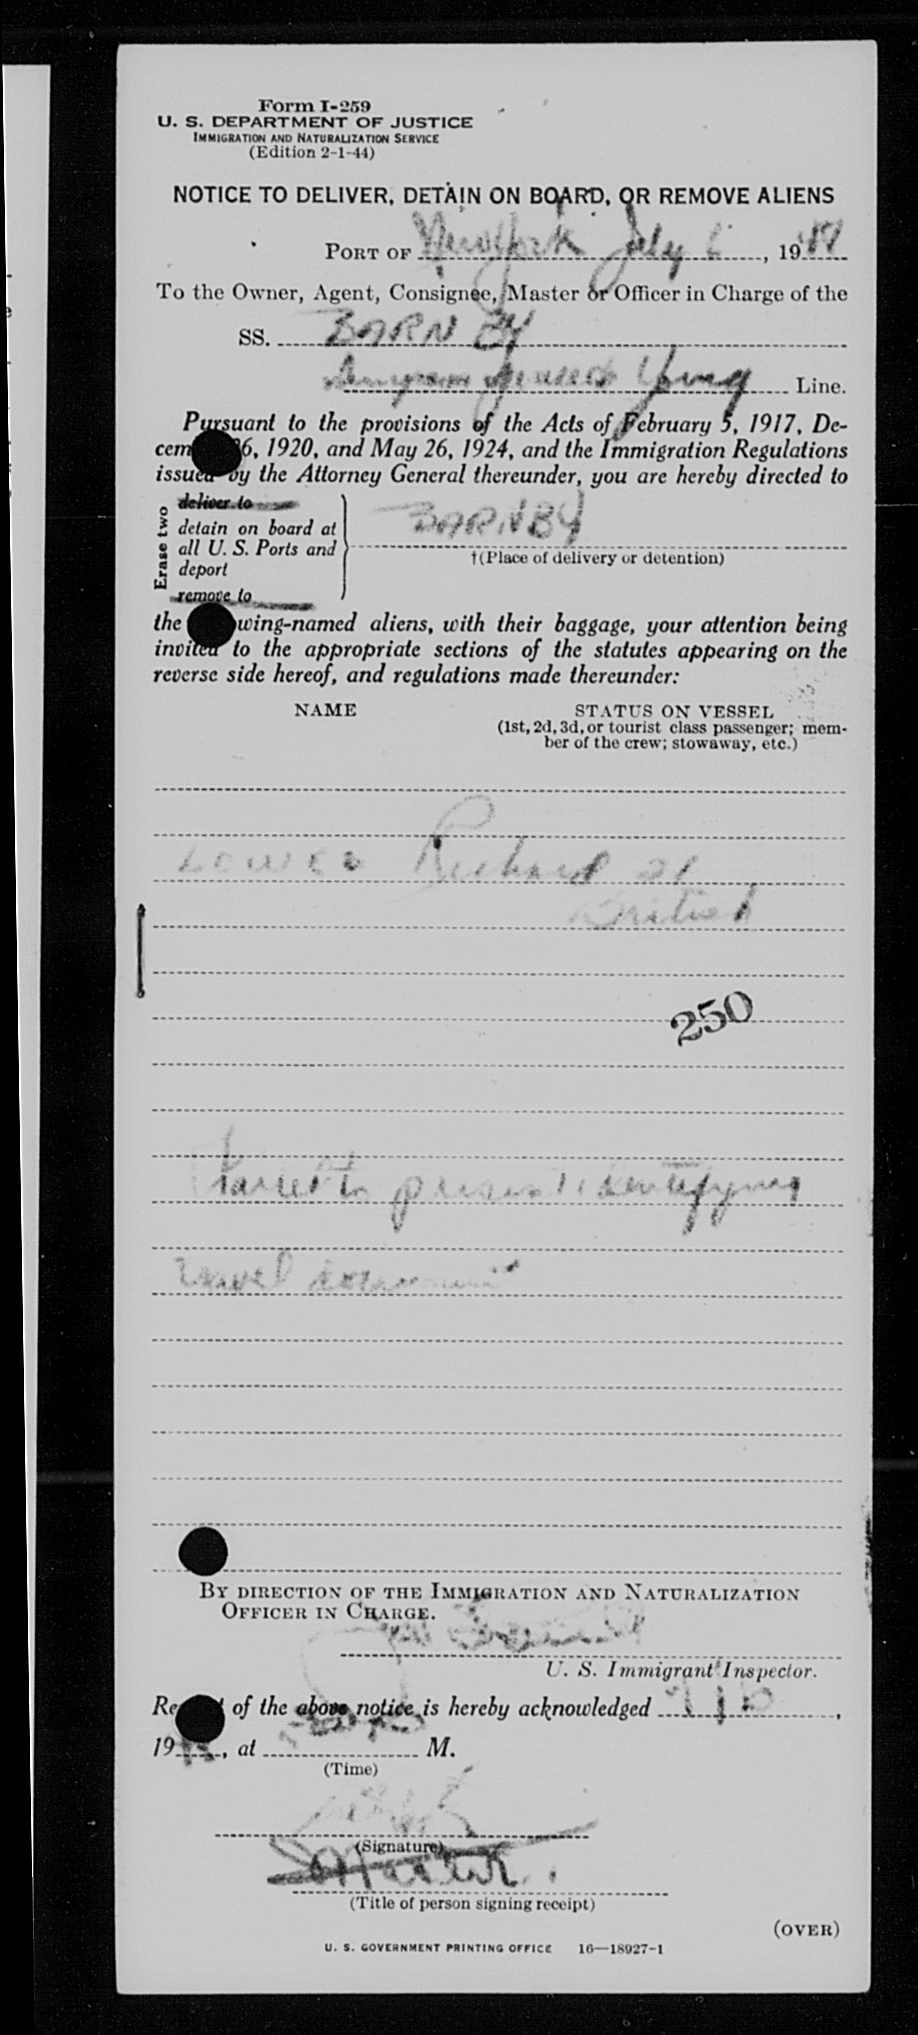 Form I-259
U. S. DEPARTMENT OF JUSTICE
IMMIGRATION AND NATURALIZATION SERVICE
(Edition 2-1-44)
NOTICE TO DELIVER, DETAIN ON BOARD, OR REMOVE ALIENS
PORT OF New York July 6, 19
To the Owner, Agent, Consignee, Master or Officer in Charge of the
SS. BARNBY
Young Line.
Pursuant to the provisions of the Acts of February 5, 1917, De-
cem 6, 1920, and May 26, 1924, and the Immigration Regulations
issued by the Attorney General thereunder, you are hereby directed to
Erase two
deliver to
detain on board at
all U. S. Ports and
deport
remove to
BARNBY
†(Place of delivery or detention)
the wing-named aliens, with their baggage, your attention being
invited to the appropriate sections of the statutes appearing on the
reverse side hereof, and regulations made thereunder:
NAME STATUS ON VESSEL
(1st, 2d, 3d, or tourist class passenger; mem-
ber of the crew; stowaway, etc.)
Richard 21
British
250
to present identifying
travel document
BY DIRECTION OF THE IMMIGRATION AND NATURALIZATION
OFFICER IN CHARGE.
U. S. Immigrant Inspector.
Re of the above notice is hereby acknowledged ,
19 , at M.
(Time)
(Signature)
Master
(Title of person signing receipt)
(OVER)
U. S. GOVERNMENT PRINTING OFFICE 16—18927-1